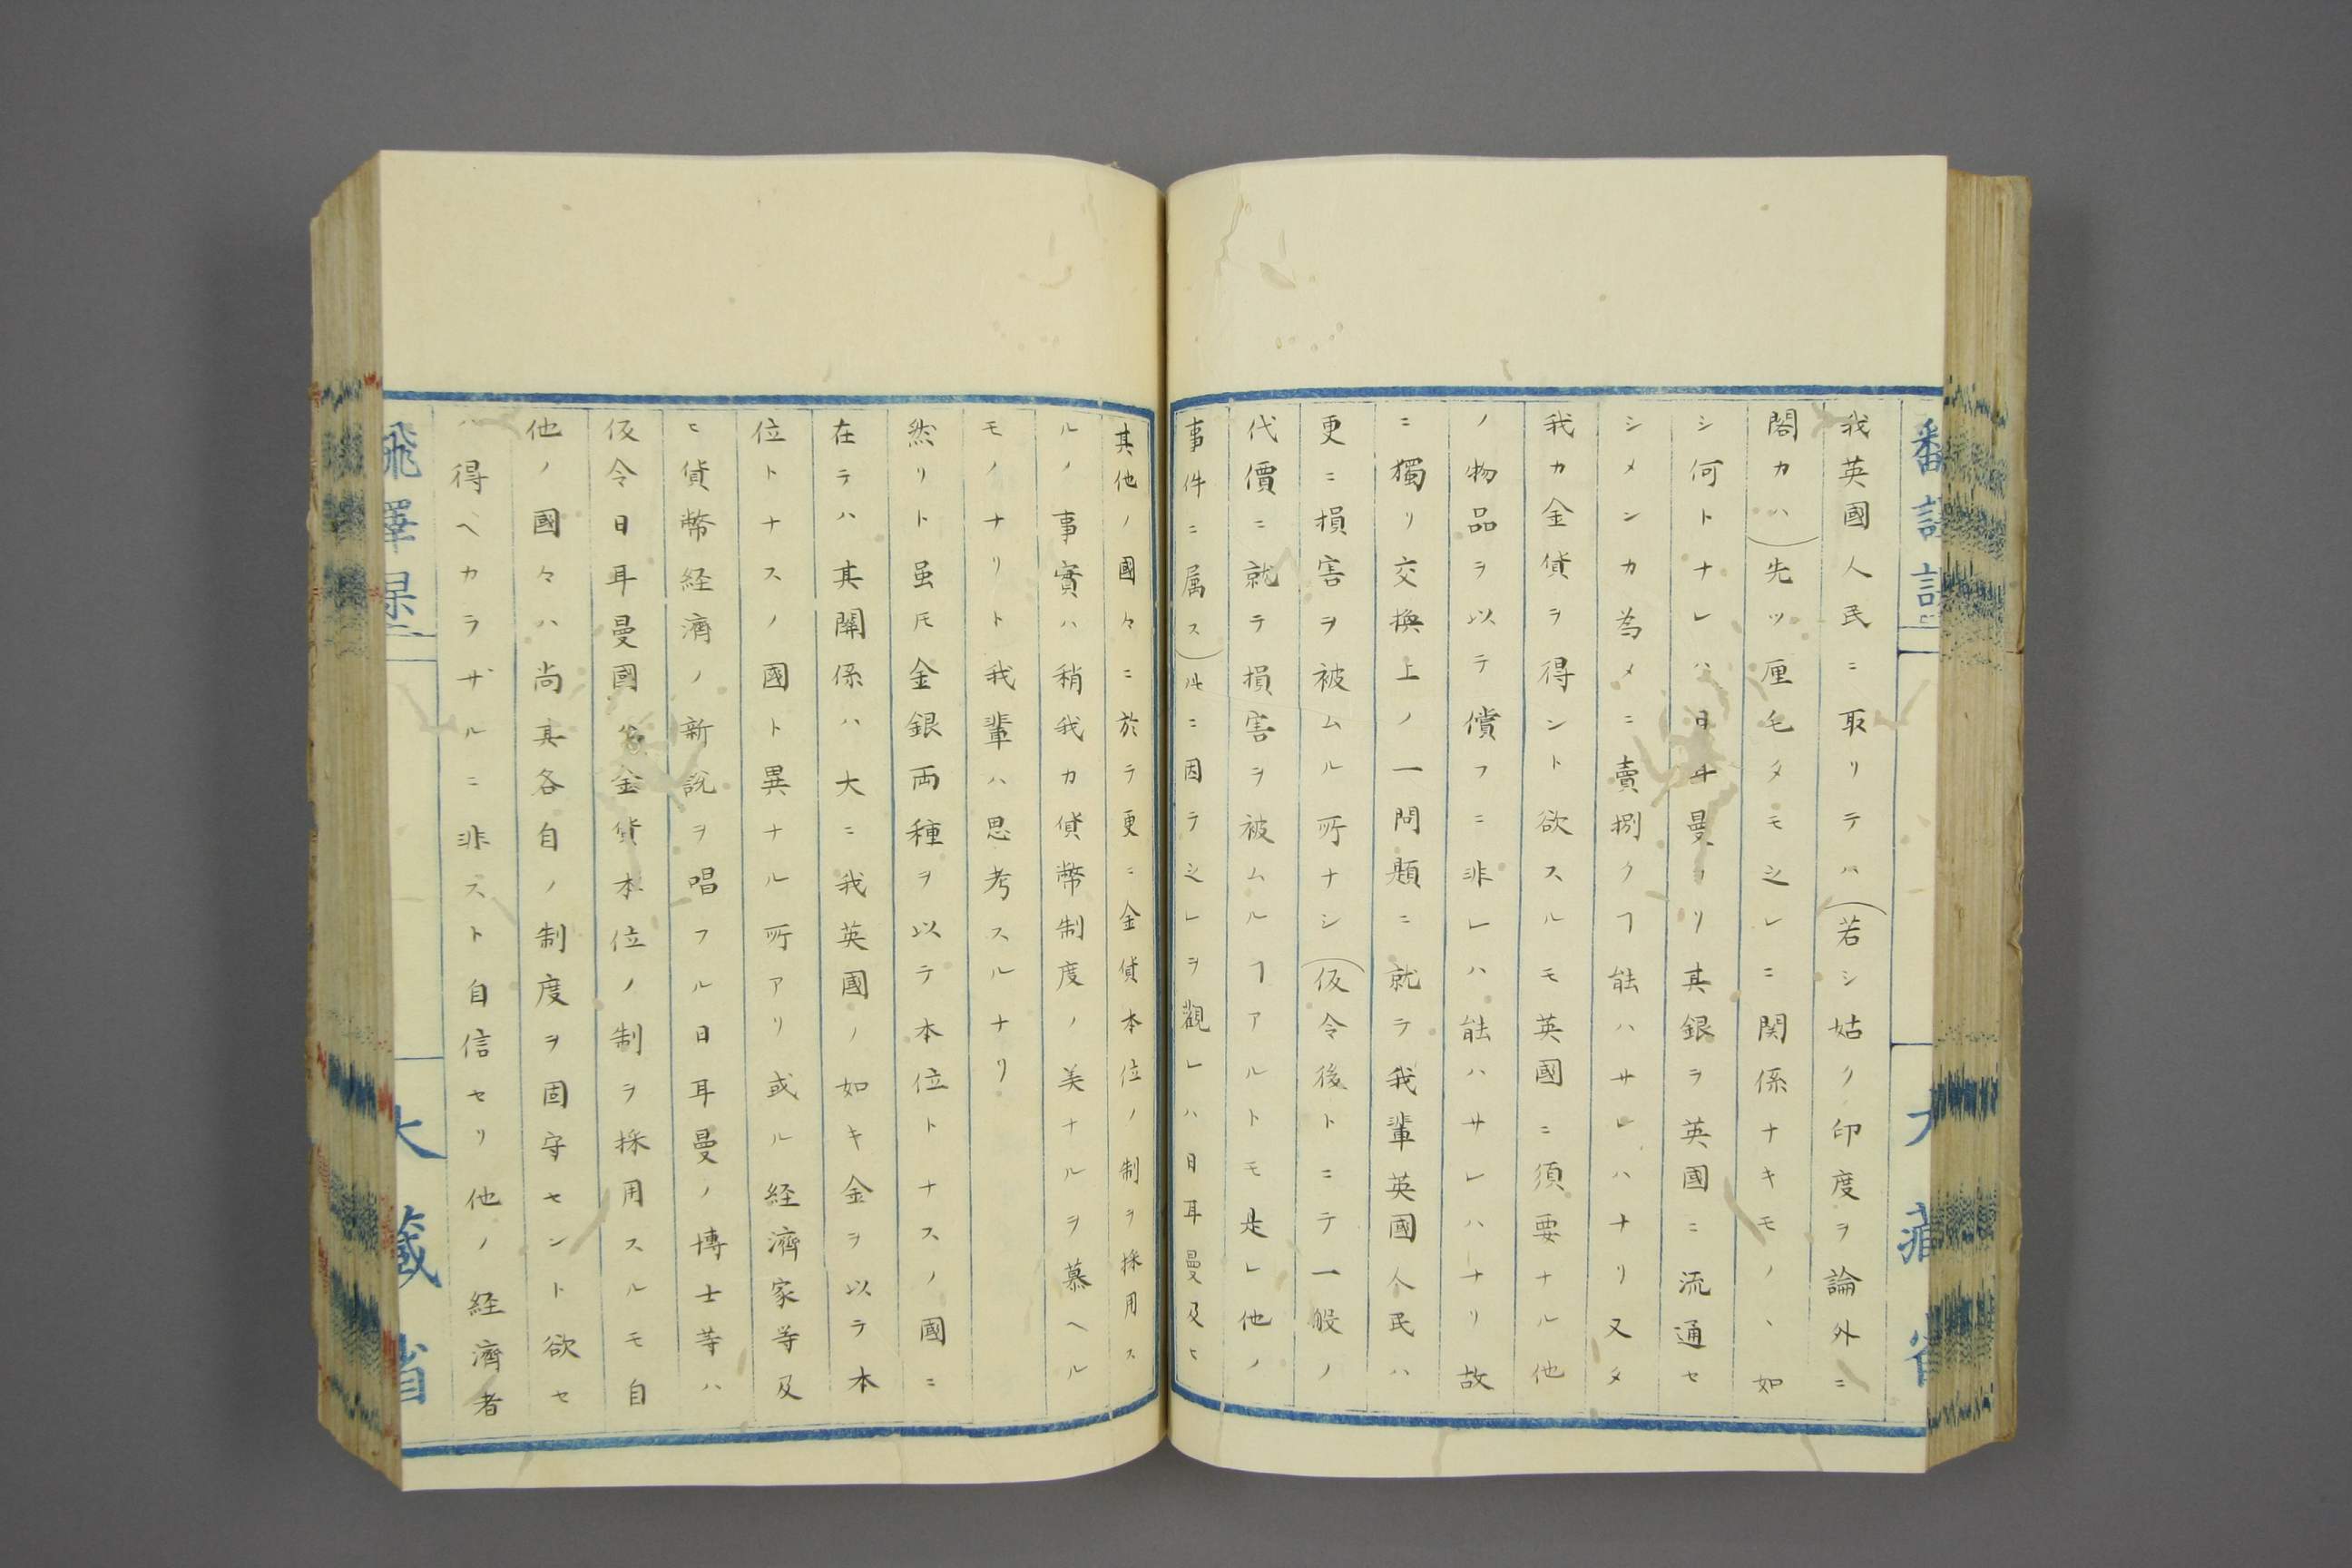 我英國人民ニ取リテハ(若シ姑ク印度ヲ論外ニ
閣カハ)先ツ厘毛タモ之レニ関係ナキモノヽ如
シ何トナレハ日耳曼ノリ其銀ヲ英國ニ流通セ
シメンカ為メニ賣捌クヿ能ハサレハナリ又タ
我カ金貨ヲ得ント欲スルモ英國ニ須要ナル他
ノ物品ヲ以テ償フニ非レハ能ハサレハナリ故
ニ獨リ交換上ノ一問題ニ就テ我輩英國人民ハ
更ニ損害ヲ被ムル所ナシ(仮令後トニテ一般ノ
代價ニ就テ損害ヲ被ムルヿアルトモ是レ他ノ
事件ニ属ス)此ニ因テ之レヲ觀レハ日耳曼及ヒ
其他ノ國々ニ於テ更ニ金貨本位ノ制ヲ採用ス
ルノ事實ハ稍我カ貨幣制度ノ美ナルヲ慕ヘル
モノナリト我輩ハ思考スルナリ
然リト虽𪜈金銀両種ヲ以テ本位トナスノ國ニ
在テハ其關係ハ大ニ我英國ノ如キ金ヲ以テ本
位トナスノ國ト異ナル所アリ或ル経濟家等及
ヒ貨幣経濟ノ新説ヲ唱フル日耳曼ノ博士等ハ
仮令日耳曼國ハ金貨本位ノ制ヲ採用スルモ自
他ノ國々ハ尚其各自ノ制度ヲ固守セント欲セ
ハ得ヘカラザルニ非スト自信セリ他ノ経濟者
大藏省